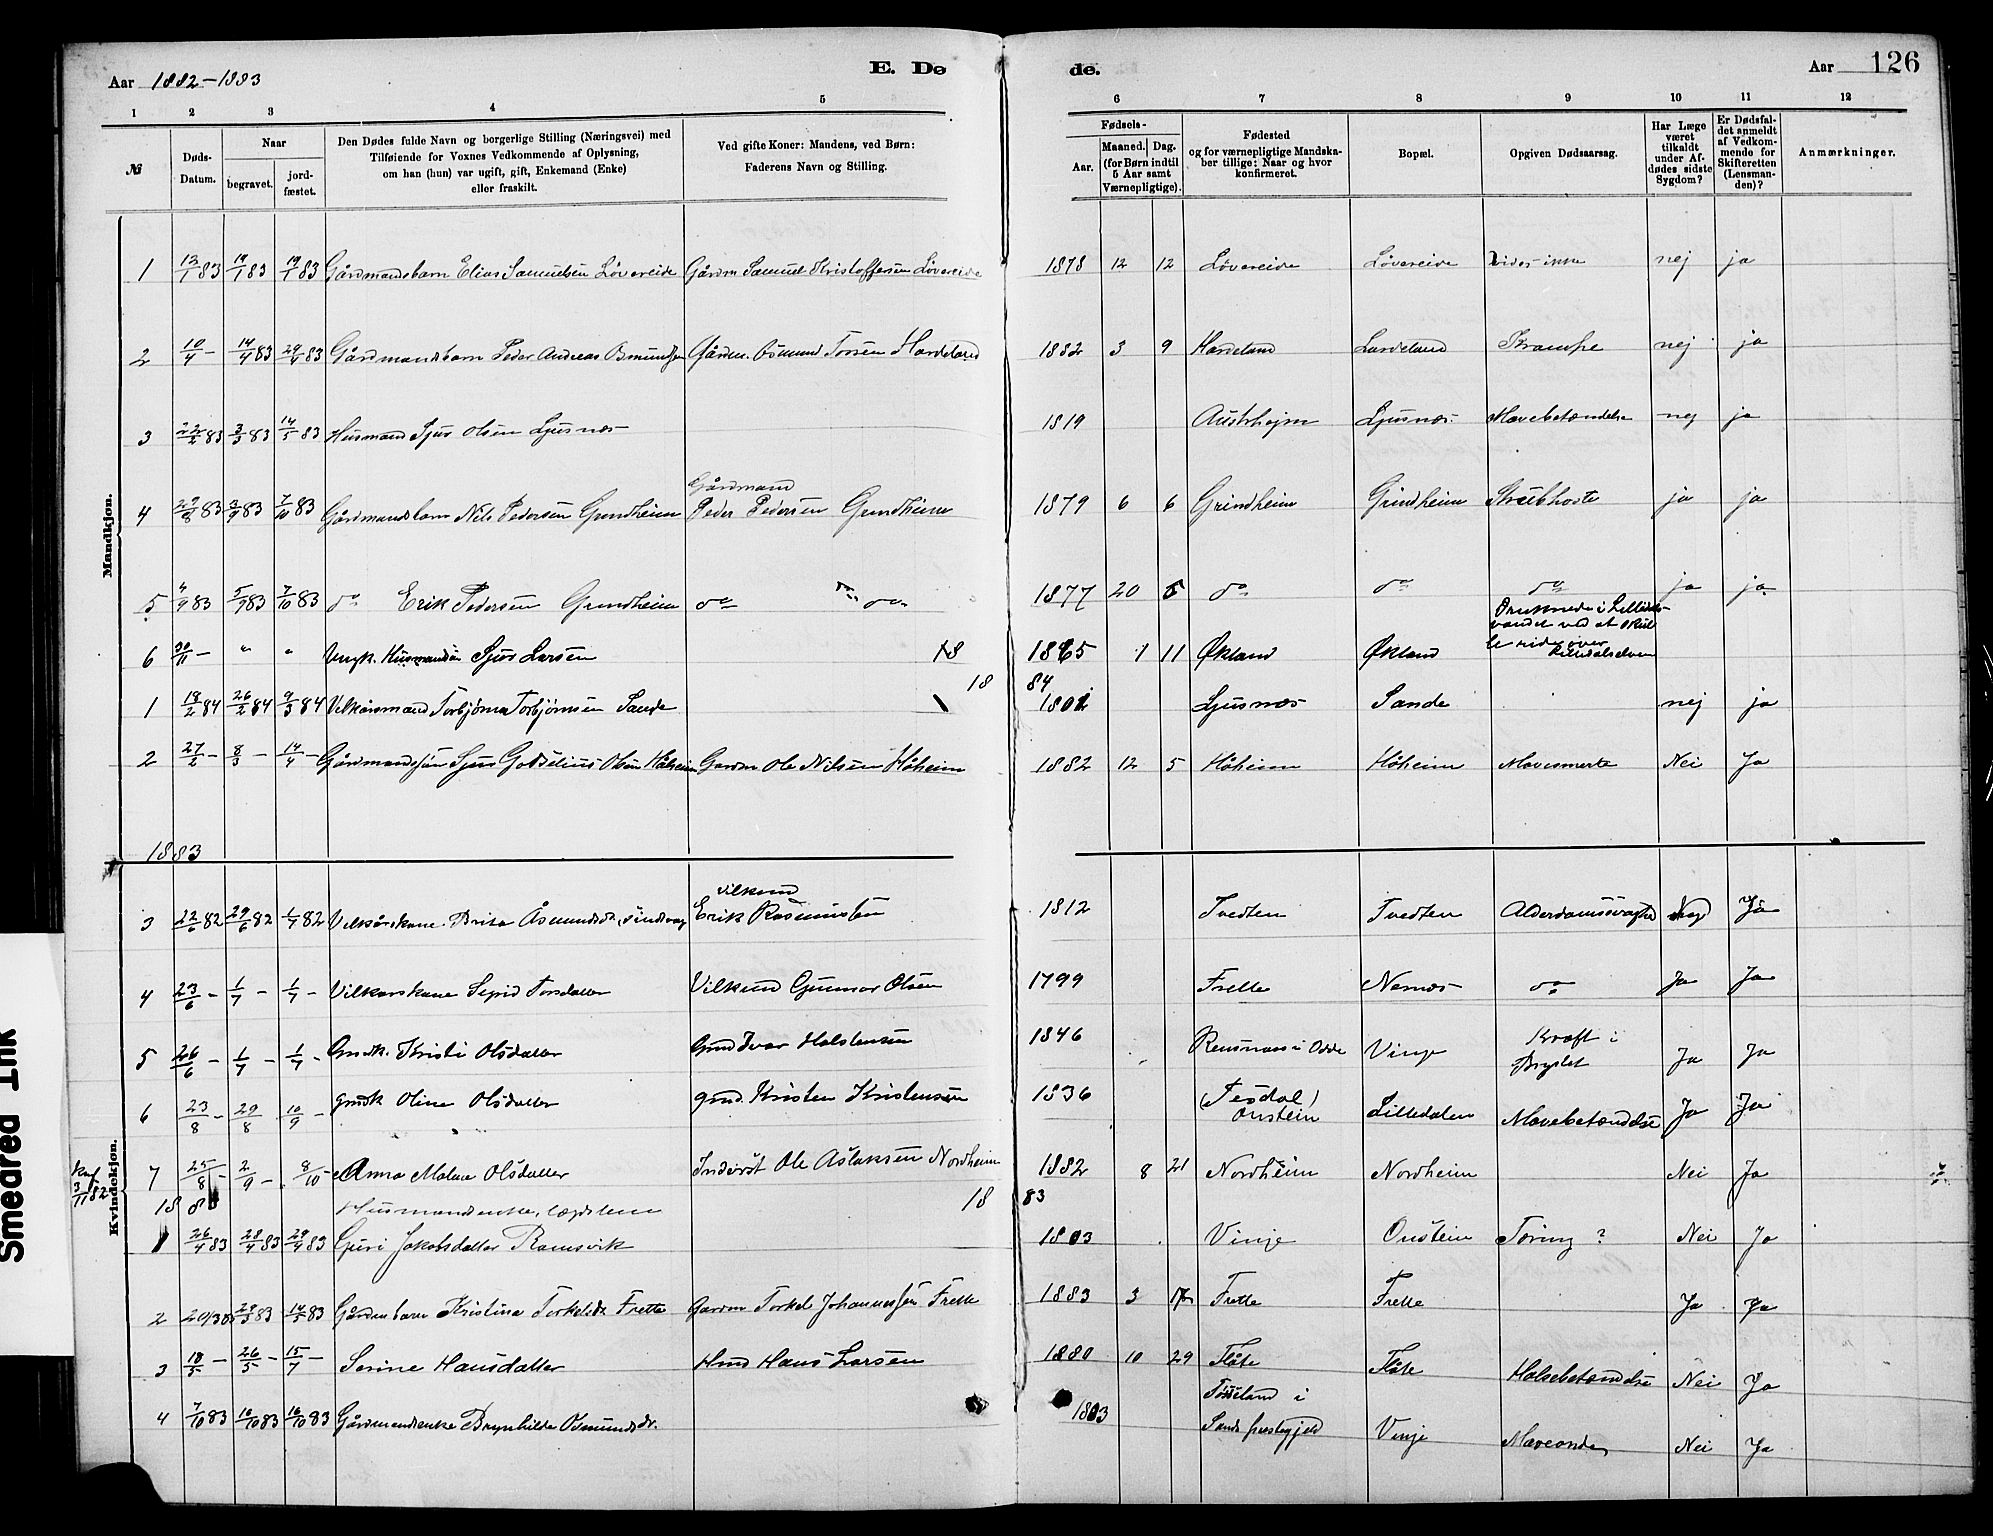 Aar 1882-1883
E. Dø
de.
Aar
126
1 2 3 4 5 6 7 8 9 10 11 12
№
Døds-Datum.
Naar
begravet.
jord-fæstet.
Den Dødes fulde Navn og borgerlige Stilling (Næringsvei) med
Tilføiende for Voxnes Vedkommende af Oplysning,
om han (hun) var ugift, gift, Enkemand (Enke)
eller fraskilt.
Ved gifte Koner: Mandens, ved Børn:
Faderens Navn og Stilling.
Fødsels-
Aar.
Maaned.
Dag.
(for Børn indtil
5 Aar samt
Værnepligtige).
Fødested
og for værnepligtige Mandska-
ber tillige: Naar og hvor
konfirmeret.
Bopæl.
Opgiven Dødsaarsag.
Har Læge
været
tilkaldt
under Af-
dødes sidste
Sygdom?
Er Dødsfal-
det anmeldt
af Vedkom-
mende for
Skifteretten
(Lensman-
den)?
Anmærkninger.
Mandkjøn.
1 12/1 83 19/1 83 19/1 83 Gårdmandsbarn Elias Samuelsen Løvereide Gårdm Samuel Kristoffersen Løvereide 1878 12 12 Løvereide Løvereide vides ikke nej ja
2 10/4 - 14/4 83 29/4 83 Gårdmandsbarn Peder Andreas Osmundsen Gårdm. Osmund Torsen Hordeland 1882 3 9 Hordeland Krampe nej ja
3 22/2 83 3/3 83 14/5 83 Husmand Sjur Olsen Ljusnæs 1819 Austrhejm Ljusnæs Mavebetændelse nej ja
Gårdmand
4 29/8 83 2/9 83 7/10 83 Gårdmandsbarn Nils Pedersen Grindheim Peder Pedersen Grindheim 1879 6 6 Grindheim Grindheim Strubhoste ja ja
5 4/9 83 5/9 83 7/10 83 do Erik Pedersen Grindheim do do do 1877 20 5 do do do ja ja
6 30/11 - " " Ungk. Husmandsøn Sjur Larsen 18 1865 1 11 Økland Økland Druknede i
vandet ved at
18 84
1 18/2 84 26/2 84 9/3 84 Vilkårsmand Torbjørn Torbjørnsen Sande 1801 Ljusnæs Sande nej ja
2 27/2 - 8/3 - 14/4 - Gårdmandssøn Sjur Godselius Olsen Håheim Gardm Ole Nilsen Håheim 1882 12 5 Håheim Håheim Mavesmerte Nei Ja
1883
Kvindekjøn.
vilkmd
3 22/6 82 29/6 82 1/7 82 Vilkårskone Brita Åsmundsdr. Erik Rasmussen 1812 Tvedten Tvedten Alderdomssvaghed Ja
4 23/6 - 1/7 - 1/7 - Vilkårskone Sigrid Torsdatter Vilkmd Gunnar Olsen 1799 Frette Nernæs do Ja Ja
5 26/6 - 1/7 - 1/7 - Gmdk. Kristi Olsdatter Gmd Ivar Halstensen 1846 i Odde Vinje Kræft i
Brystet Ja Ja
6 23/8 - 29/8 10/9 - gmdk Oline Olsdatter gmd. Kristen Kristensen 1836 (Tesdal)
Onstein Lilledalen Mavebetændelse Ja Ja
7 25/8 - 2/9 - 8/10 - Anna Malene Olsdatter Inderst Ole Aslaksen Nordheim 1882 8 21 Nordheim Nordheim Nei Ja
3/11 82
18 Husmandsenke, lægdslem 18 83
1 26/4 83 28/4 83 29/4 83 Guri Jakobsdatter Ramsvik 1803 Vinje Onstein Tæring? Nei Ja
2 28/3 83 14/5 83 Gårdmbarn Kristina Torkelsdr Frette Gardm Torkel Johannessen Frette 1883 3 Frette Frette Ja Ja
3 18/5 - 26/5 - 15/7 - Serine Hansdatter Hmd Hans Larsen 1880 10 29 Flåte Flåte Halsebetændelse Nei Ja
4 7/10 83 16/10 83 16/10 83 Gårdmandsenke Brynhilde Osmundsdr. 1803 Tøsseland i
Sands prestegjeld Vinje Maveonde Nei Ja
Smedred Ink